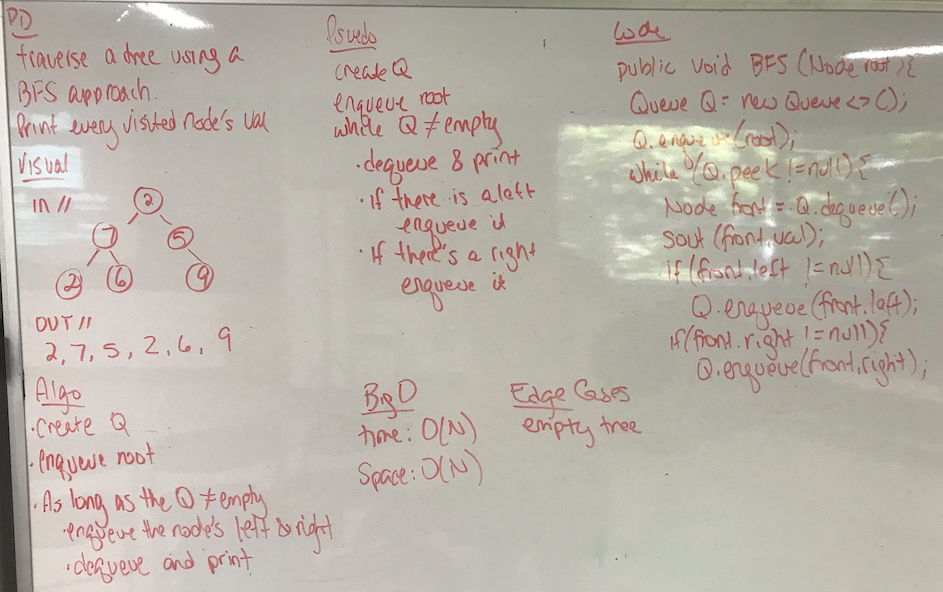 PD
traverse a tree using a
BFS approach.
Print every visited node's val
Visual
IN //
2
7 5
2 6 9
OUT //
2, 7, 5, 2, 6, 9
Algo
• Create Q
• enqueue root
• As long as the Q ≠ empty
• enqueue the node's left & right
• dequeue and print
Psuedo
create Q
enqueue root
while Q ≠ empty
• dequeue & print
• if there is a left
enqueue it
• If there's a right
enqueue it
Big O
time: O(N)
Space: O(N)
Edge Cases
empty tree
Code
public void BFS (Node root) {
Queue Q = new Queue<>();
Q.enqueue(root);
while (Q.peek != null) {
Node front = Q.dequeue();
Sout (front.val);
if (front.left != null) {
Q.enqueue(front.left);
if (front.right != null) {
Q.enqueue(front.right);